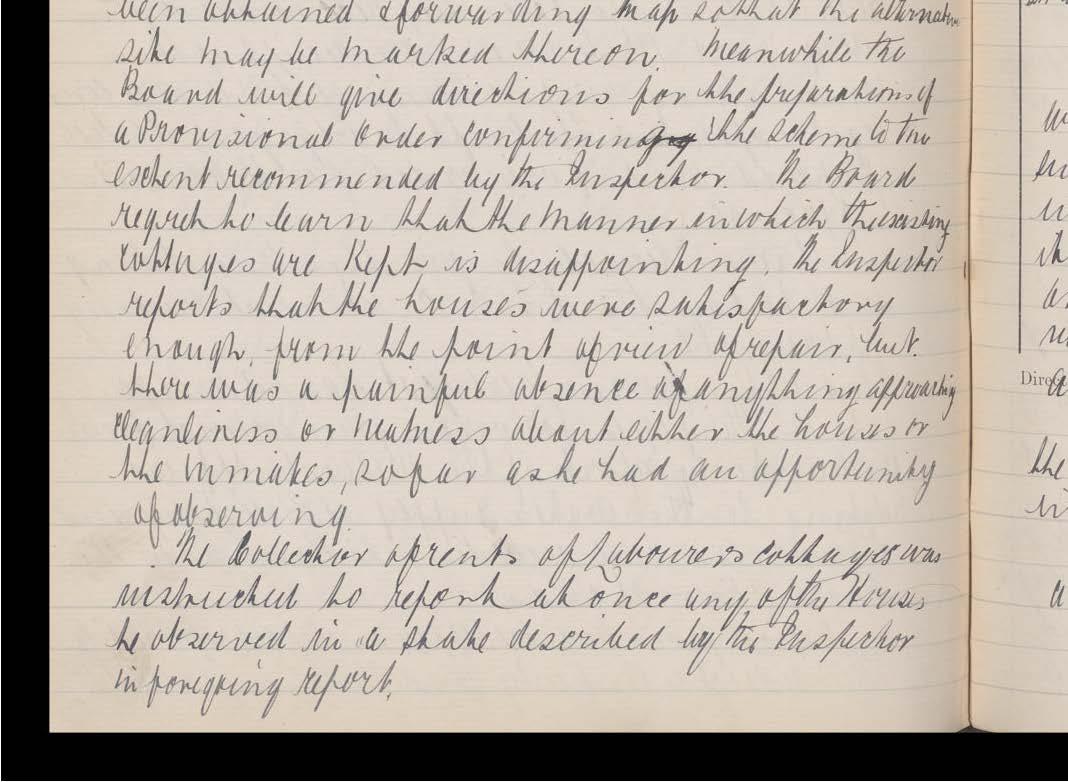 been obtained & forwarding map so that the alternative
site may be marked thereon. Meanwhile the
Board will give directions for the preparations of
a Provisional Order confirming the scheme to the
extent recommended by the Inspector. The Board
regret to learn that the manner in which the existing
cottages are Kept, is disappointing. The Inspector
reports that the houses were satisfactory
enough, from the point of view of repair, but.
there was a painful absence of anything approaching
cleanliness or neatness about either the houses or
the inmates, so far as he had an opportunity
of observing.
The Collector of rents of Labourers cottages was
instructed to report at once any of the Houses
he observed in a state described by the Inspector
in foregoing report.
Direc
the